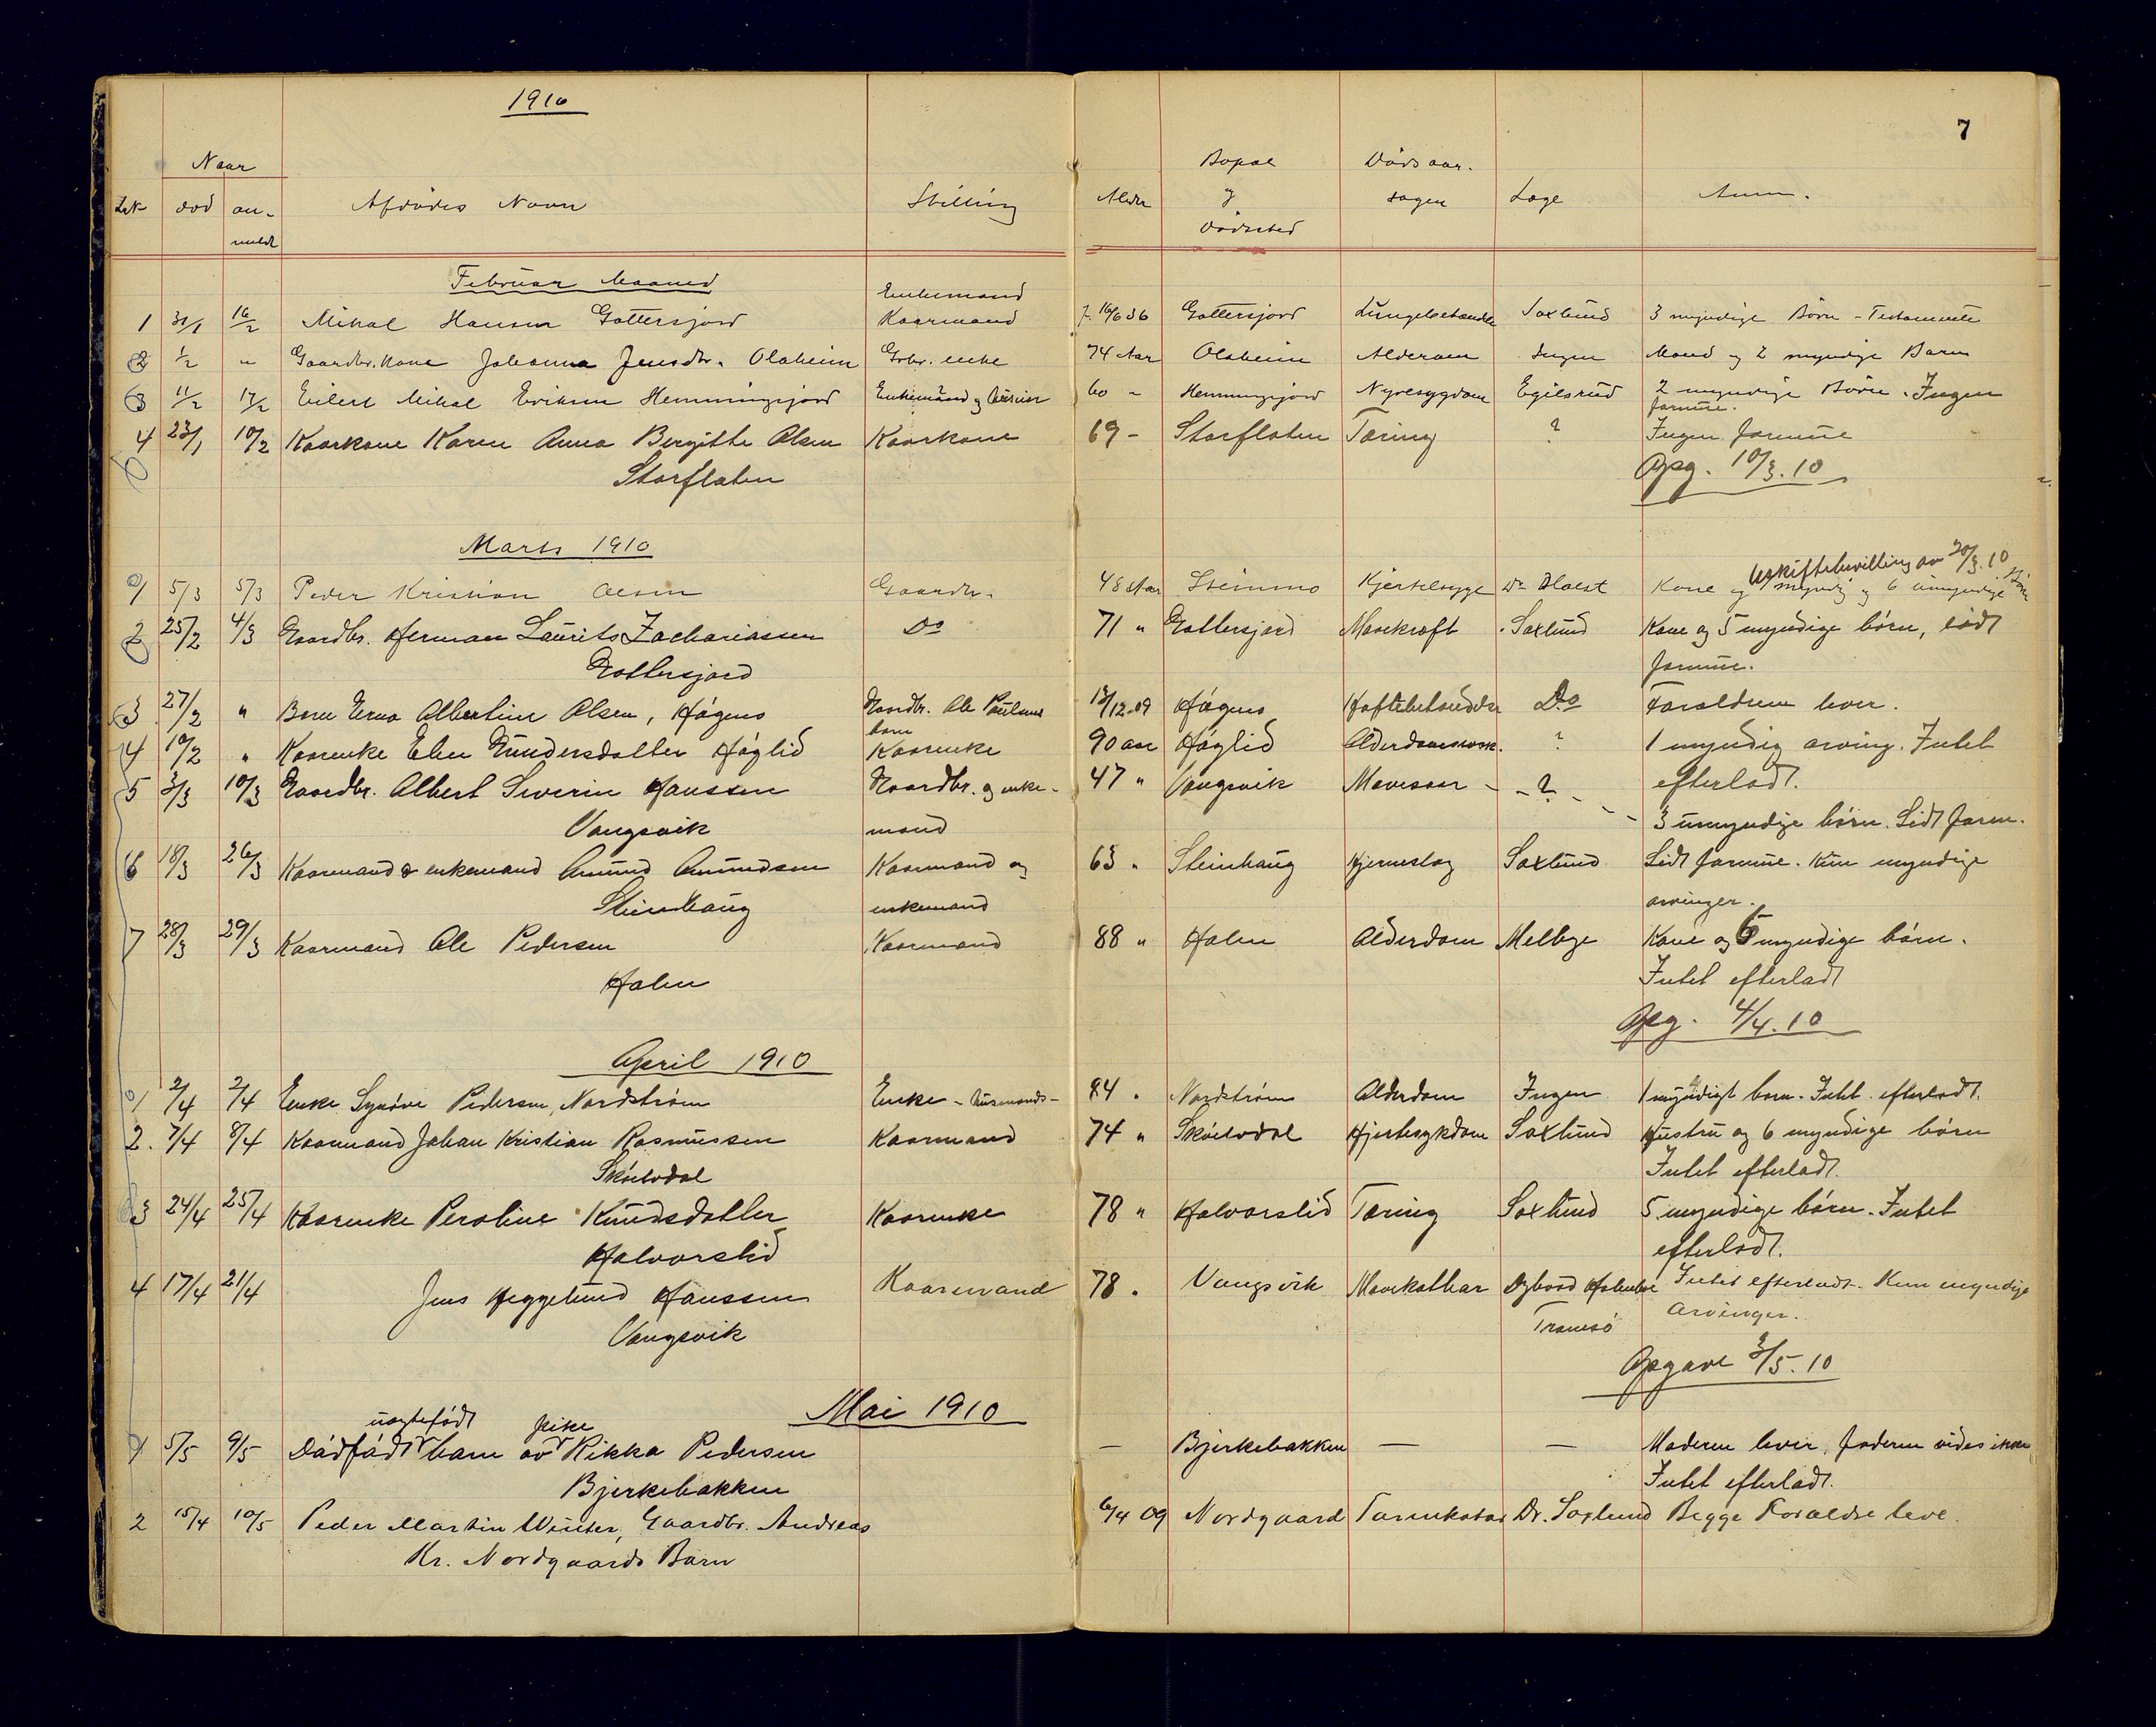 1910
7
Naar
Bopæl Dødsaar-
Lnr død an- Afdødes Navn Stilling Alder og sagen Læge Anm.
meldt dødssted
Februar Maaned
Enkemand
1 31/1 16/2 Mikal Hansen Gottersjord Kaarmand f. 16/6 36 Gottersjord Lungebetændelse Soxlund 3 myndige Børn - Testamente
2 1/2 " Gaardbr. kone Johanna Jensdtr. Olaheim Grbr. enke 74 Aar Olaheim Alderdom Ingen Mand og 2 myndige Barn
3 11/2 17/2 Eilert Mikal Eriksen Hemmingsjord Enkemand og 60 - Hemmingsjord Nyresygdom Egilsrud 2 myndige Børn. Ingen
formue.
4 23/1 10/2 Kaarkone Karen Anna Bergitte Olsen Kaarkone 69 - Storflaten Tæring ? Ingen formue
Storflaten
Opg. 10/3.10
Marts 1910
Uskiftebevilling av 20/3.10
1 5/3 5/3 Peder Kristian Olsen Gaardbr. 48 Aar Steinmo Kjertelsyge Dr Holst Kone og 1 myndig og 6 umyndige Børn
2 25/2 4/3 Gaardbr. Herman Laurits Zachariassen Do 71 " Gottersjord Mavekræft Soxlund Kone og 5 myndige børn, lidt
Gottersjord formue.
3 27/2 " Barn Erna Albertine Olsen, Høgmo Gaardbr. Ole Paulsens 13/12-09 Høgmo Do Forældrene lever.
barn
4 10/2 " Kaarenke Elen Gundersdatter Høglid Kaarenke 90 aar Høglid Alderdomssvak. ? 1 myndig arving. Intet
5 3/3 10/3 Gaardbr. Albert Severin Hanssen Gaardbr. og enke- 47 " Vangsvik Mavesaar - - ? - efterladt.
Vangsvik mand - 3 umyndige børn. Lidt form.
6 18/3 26/3 Kaarmand & enkemand Amund Amundsen Kaarmand og 63 " Steinhaug Hjerneslag Soxlund Lidt formue. Kun myndige
Steinhaug enkemand arvinger.
7 28/3 29/3 Kaarmand Ole Pedersen Kaarmand 88 " Holen Alderdom Melbye Kone og 6 myndige børn.
Holen Intet efterladt
Opg. 4/4.10
April 1910
1 2/4 2/4 Enke Synøve Pedersen, Nordstrøm Enke - husmands- 84 " Nordstrøm Alderdom Ingen 1 myndigt barn. Intet efterladt.
2. 7/4 8/4 Kaarmand Johan Kristian Rasmussen Kaarmand 74 " Skøelvdal Hjertesykdom Soxlund Hustru og 6 myndige børn
Skøelvdal Intet efterladt.
3 24/4 25/4 Kaarenke Peroline Knudsdatter Kaarenke 78 " Halvorslid Tæring Soxlund 5 myndige børn. Intet
Halvorslid efterladt.
4 17/4 21/4 Jens Heggelund Hanssen Kaarmand 78 " Vangsvik Mavekathar Holmboe Intet efterladt. Kun myndige
Vangsvik Tromsø arvinger.
Opgave 3/5.10
Mai 1910
uægtefødt pike
1 5/5 9/5 Dødfødt barn av Rikka Pedersen — Bjerkebakken — — Moderen lever, faderen vides ikke
Bjerkebakken Intet efterladt.
2 15/4 10/5 Peder Martin Winter, Gaardbr. Andreas 6/4 09 Nordgaard Tarmkatar Dr. Soxlund Begge Forældre leve.
Kr. Nordgaards Barn